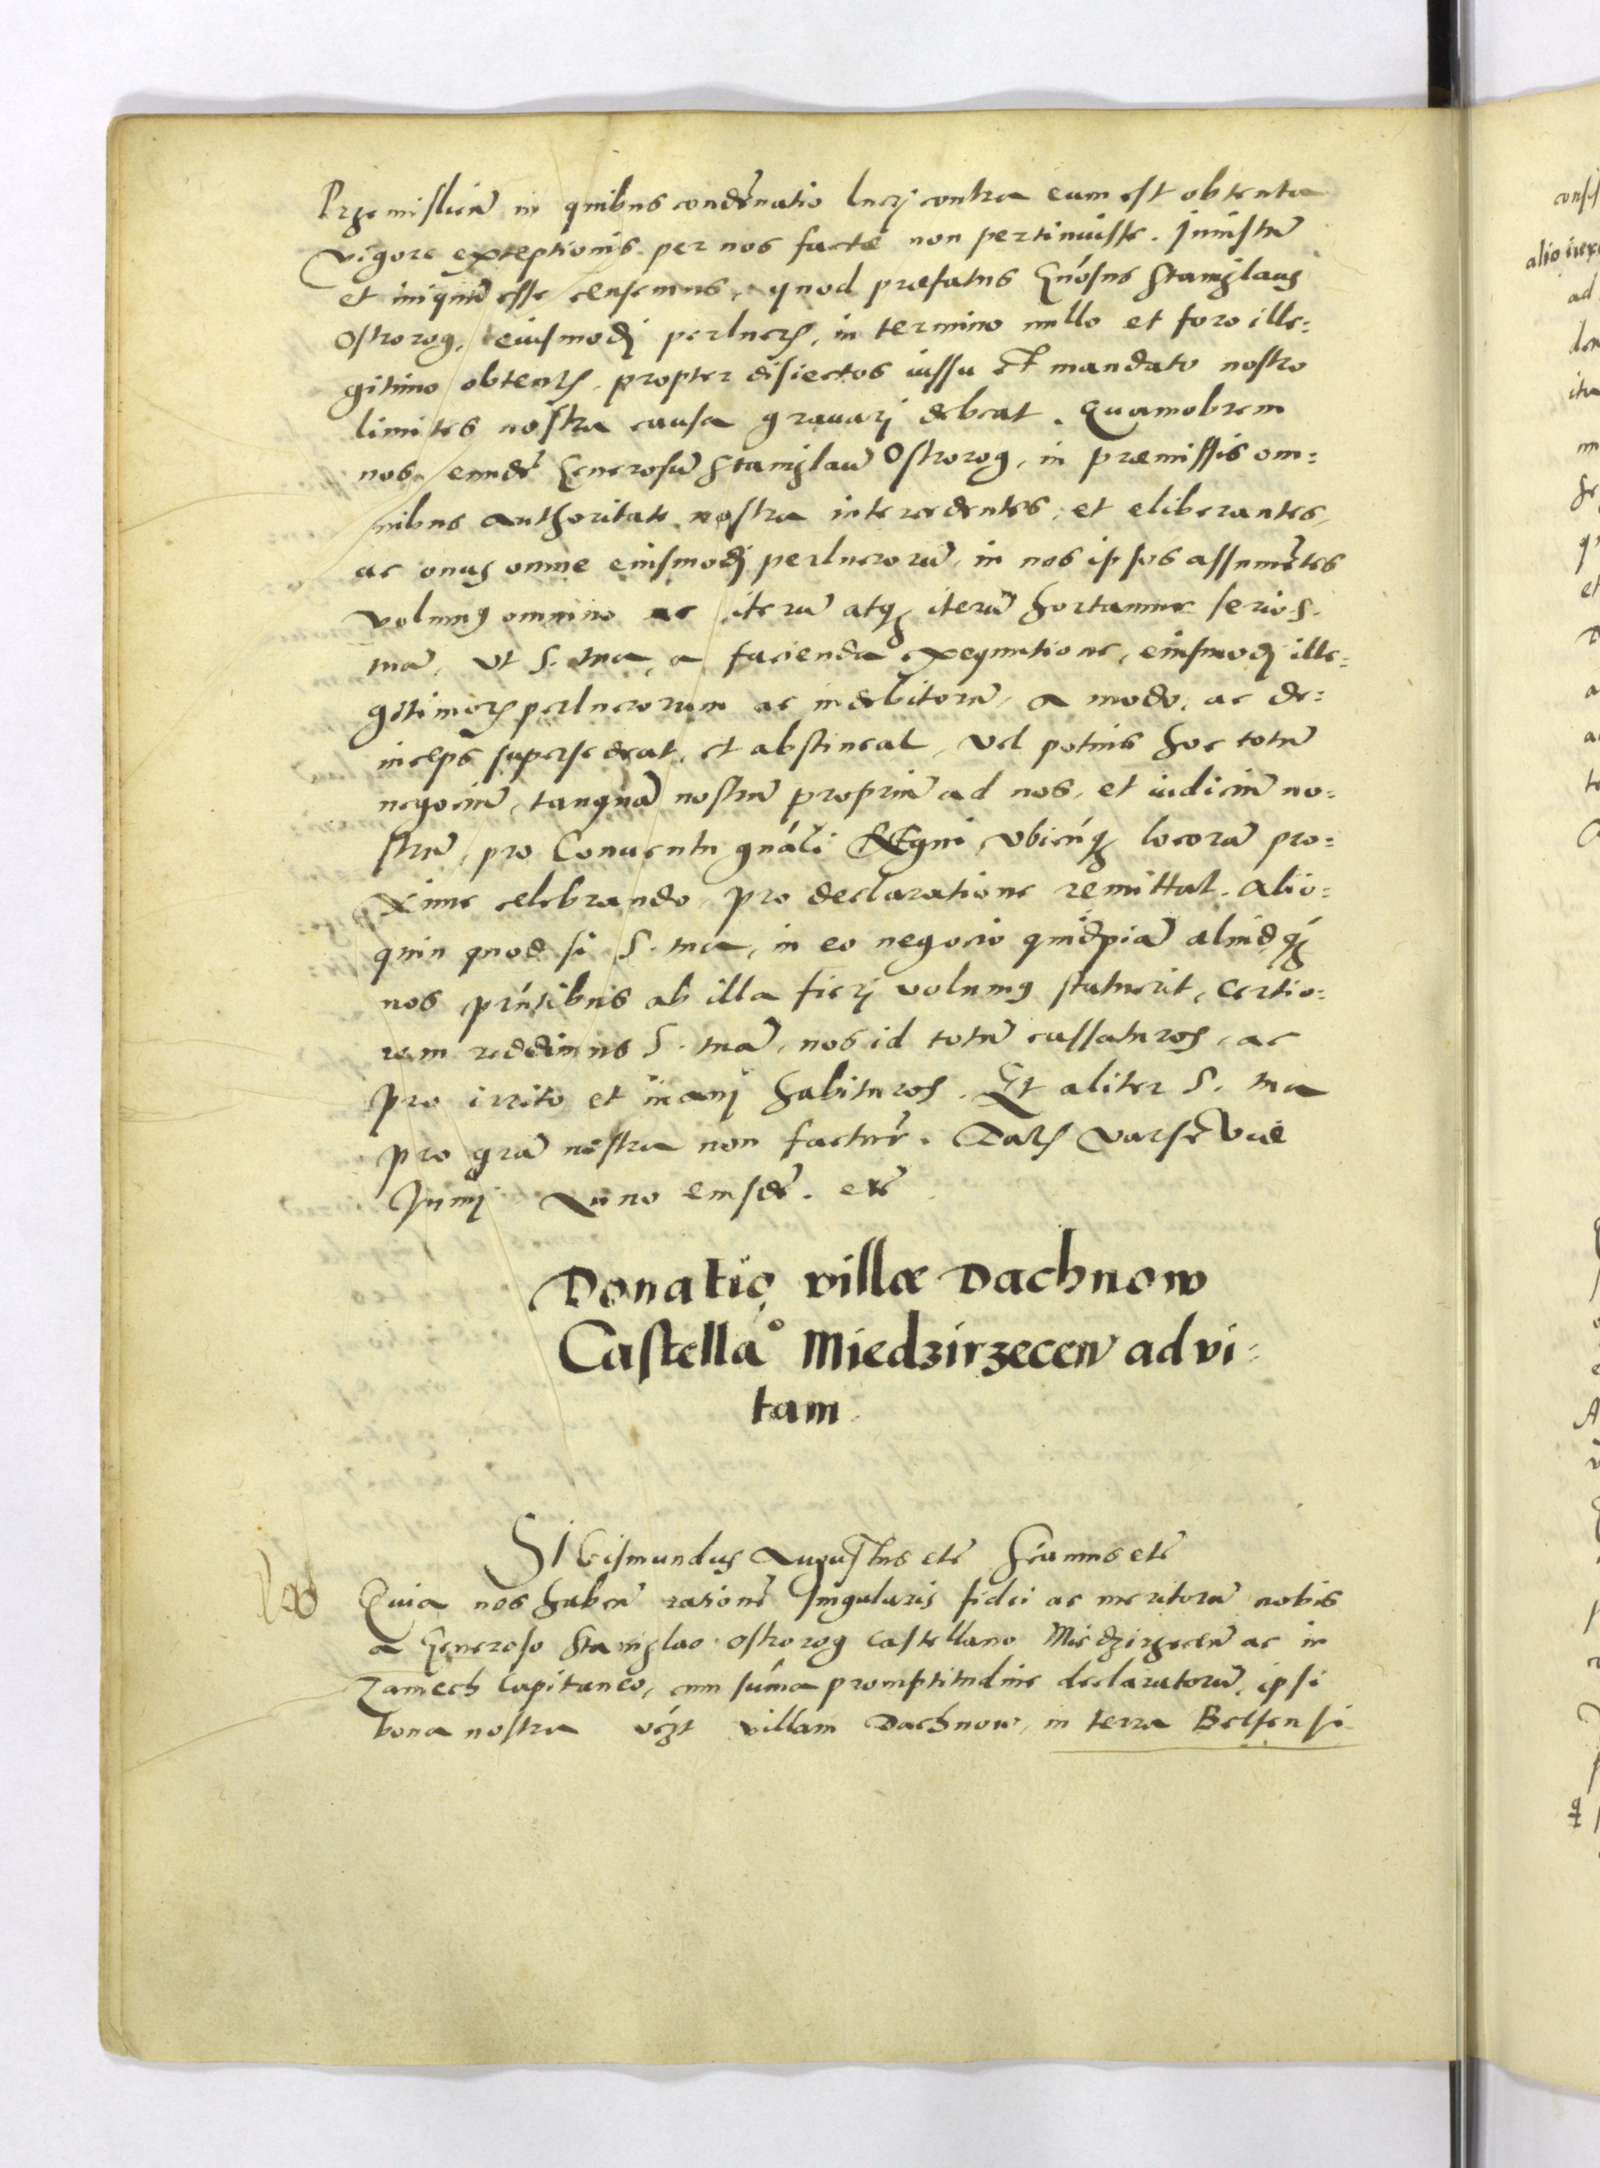 Przemislien̄ in quibus condēnatio lucrj contra eum est obtenta
vigore exceptionis per nos factæ non pertinuisse. Iniustū
et iniquū esse censemus, quod præfatus Gn̄osus Stanislaus
Ostrorog, eiusmodj perlucris, in termino nullo et foro ille=
gitimo obtentis, propter disiectos iussu et mandato nostro
limites nostra causa grauarj debeat. Quamobrem
nos eundē Generosū Stanislaū Ostrorog, in præmissis om=
nibus authoritate nostra intercedentes, et eliberantes,
ac onus omne eiusmodj perlucrorū, in nos ipsos assumētes
volumus omnino ac iterū atq; iterū hortamur serio S.
tuā, vt S. tua, a facienda exequutione, eiusmodj ille=
gitimorum perlucrorum ac indebitorū, a modo, ac de=
inceps supersedeat, et abstineat, vel potius hoc totū
negociū, tanquā nostrū propriū ad nos, et iudiciū no=
strū, pro Conuentu gn̄ali Regni, vbicunq; locorū pro=
xime celebrando, pro declaratione remittat. Alio=
quin quod si S. tua, in eo negocio quidpiā aliud, q̄
nos pn̄tibus ab illa fierj volumus statuerit, certio=
rem reddimus S. tuā, nos id totū cassaturos, ac
pro irrito et inanj habituros. Et aliter S. tua
pro grā nostra non facturē. Datis Varsē
Junij Anno eiusdē. etc̄
Donatio villæ Dachnow
Castellā° Miedzirzecen̄ ad vi=
tam
SIGismundus Augustus etc̄ Sc̄amus etc̄
Quia nos haben̄ rationē singularis fidei ac meritorū nobis
a Generoso Stanislao Ostrorog Castellano Miedzirzecen̄ ac in
Zamech Capitaneo, cum sum̄a promptitudine declaratorū, ipsi
bona nostra vz̄t villam Dachnow, in terra Belsensi